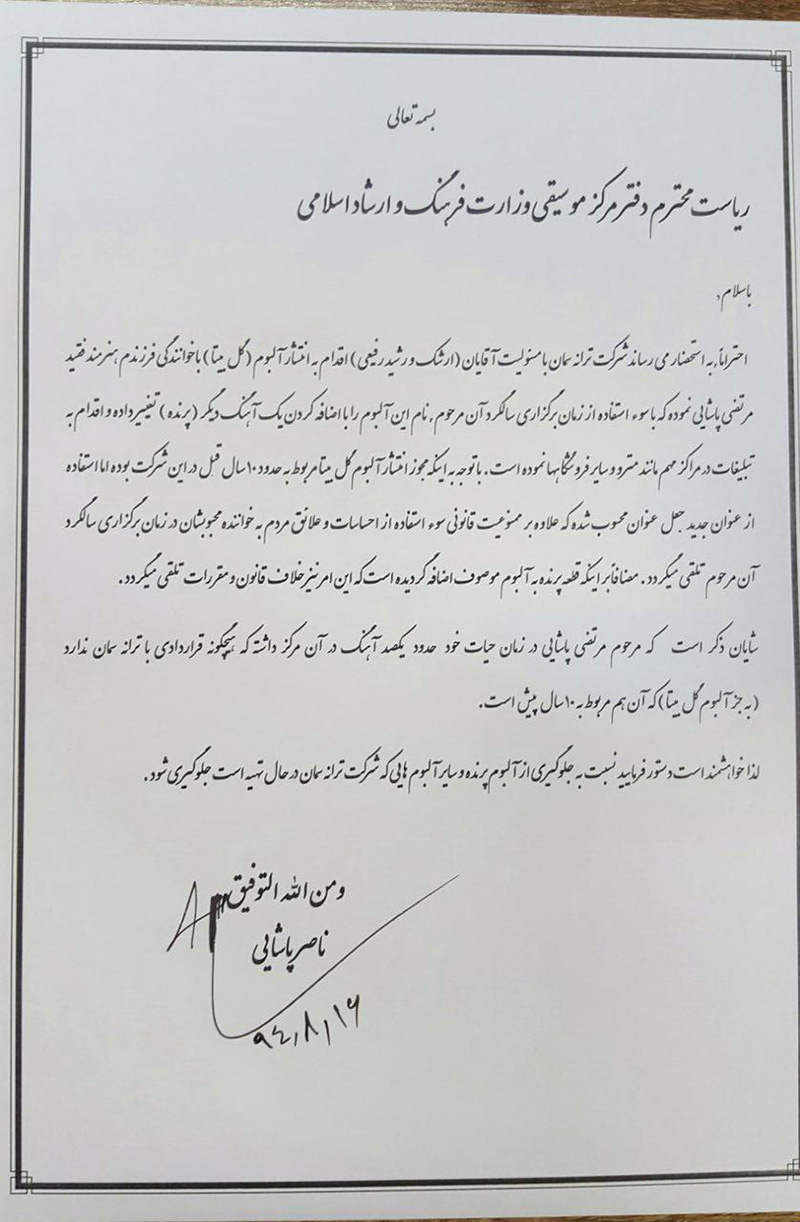 بسمه تعالی
ریاست محترم دفتر مرکز موسیقی وزارت فرهنگ و ارشاد اسلامی
باسلام؛
احتراماً، به استحضار می رساند شرکت ترانه سمان با مسئولیت آقایان (ارشک و رشید رفیعی) اقدام به انتشار آلبوم (گل بیتا) با خوانندگی فرزندم هنرمند فقید
مرتضی پاشایی نموده که با سوء استفاده از زمان برگزاری سالگرد آن مرحوم، نام این آلبوم را با اضافه کردن یک آهنگ دیگر (پرنده) تغییر داده و اقدام به
تبلیغات در مراکز مهم مانند مترو و سایر فروشگاهها نموده است. با توجه به اینکه مجوز انتشار آلبوم گل بیتا مربوط به حدود ۱۰ سال قبل در این شرکت بوده اما استفاده
از عنوان جدید جعل عنوان محسوب شده که علاوه بر ممنوعیت قانونی سوء استفاده از احساسات و علائق مردم به خواننده محبوبشان در زمان برگزاری سالگرد
آن مرحوم تلقی میگردد. مضافاً بر اینکه قطعه پرنده به آلبوم موصوف اضافه گردیده است که این امر نیز خلاف قانون و مقررات تلقی میگردد.
شایان ذکر است که مرحوم مرتضی پاشایی در زمان حیات خود حدود یکصد آهنگ در آن مرکز داشته که هیچگونه قراردادی با ترانه سمان ندارد
(به جز آلبوم گل بیتا) که آن هم مربوط به ۱۰ سال پیش است.
لذا خواهشمند است دستور فرمایید نسبت به جلوگیری از آلبوم پرنده و سایر آلبوم هایی که شرکت ترانه سمان در حال تهیه است جلوگیری شود.
ومن الله التوفیق
ناصر پاشایی
۹۴,۸,۱۶